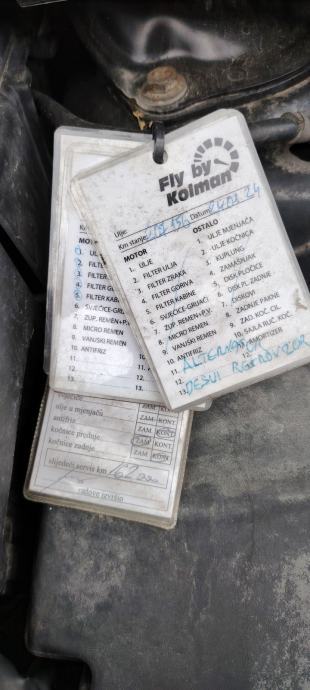 Fly by
Kolman
Ulje:
Km stanje: Datum: 24
MOTOR
1. ULJE
2. FILTER ULJA
3. FILTER ZRAKA
4. FILTER GORIVA
5. FILTER KABINE
6. SVJEĆICE-GRIJAČI
7. ZUP. REMEN+P.V
8. MICRO REMEN
9. VANJSKI REMEN
10. ANTIFRIZ
11. ALTERNATOR
12.
13. DESNI RETROVIZOR
OSTALO
1. ULJE MJENJAČA
2. ULJE KOČNICA
3. KUPLUNG
4. ZAMAŠNJAK
5. DISK PLOČICE
6. DISK PL. ZADNJE
7. DISKOVI
8. ZADNJE PAKNE
9. ZAD. KOČ. CIL.
10. SAJLA RUČ. KOČ.
11. AMORTIZER
12.
1. ULJE
2. FILTER
3. FILTER
4. FILTER G
5. FILTER KABI
6. SVJEĆICE-GRI
7. ZUP. REMEN+P.V
8. MICRO REMEN
9. VANJSKI REMEN
10. ANTIFRIZ
11.
12.
13.
ulje u mjenjaču ZAM KONT
antifriz ZAM KONT
kočnice prednje ZAM KONT
kočnice zadnje ZAM KONT
slijedeći servis km 162
radove izvršio